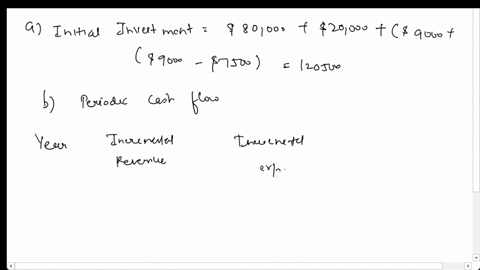 a) Initial Investment = $80,000 + $20,000 + ($9000 +
($9000 - $7500) = 120500
b) Periodic Cash flow
Year Incremental Incremental
Revenue exp.